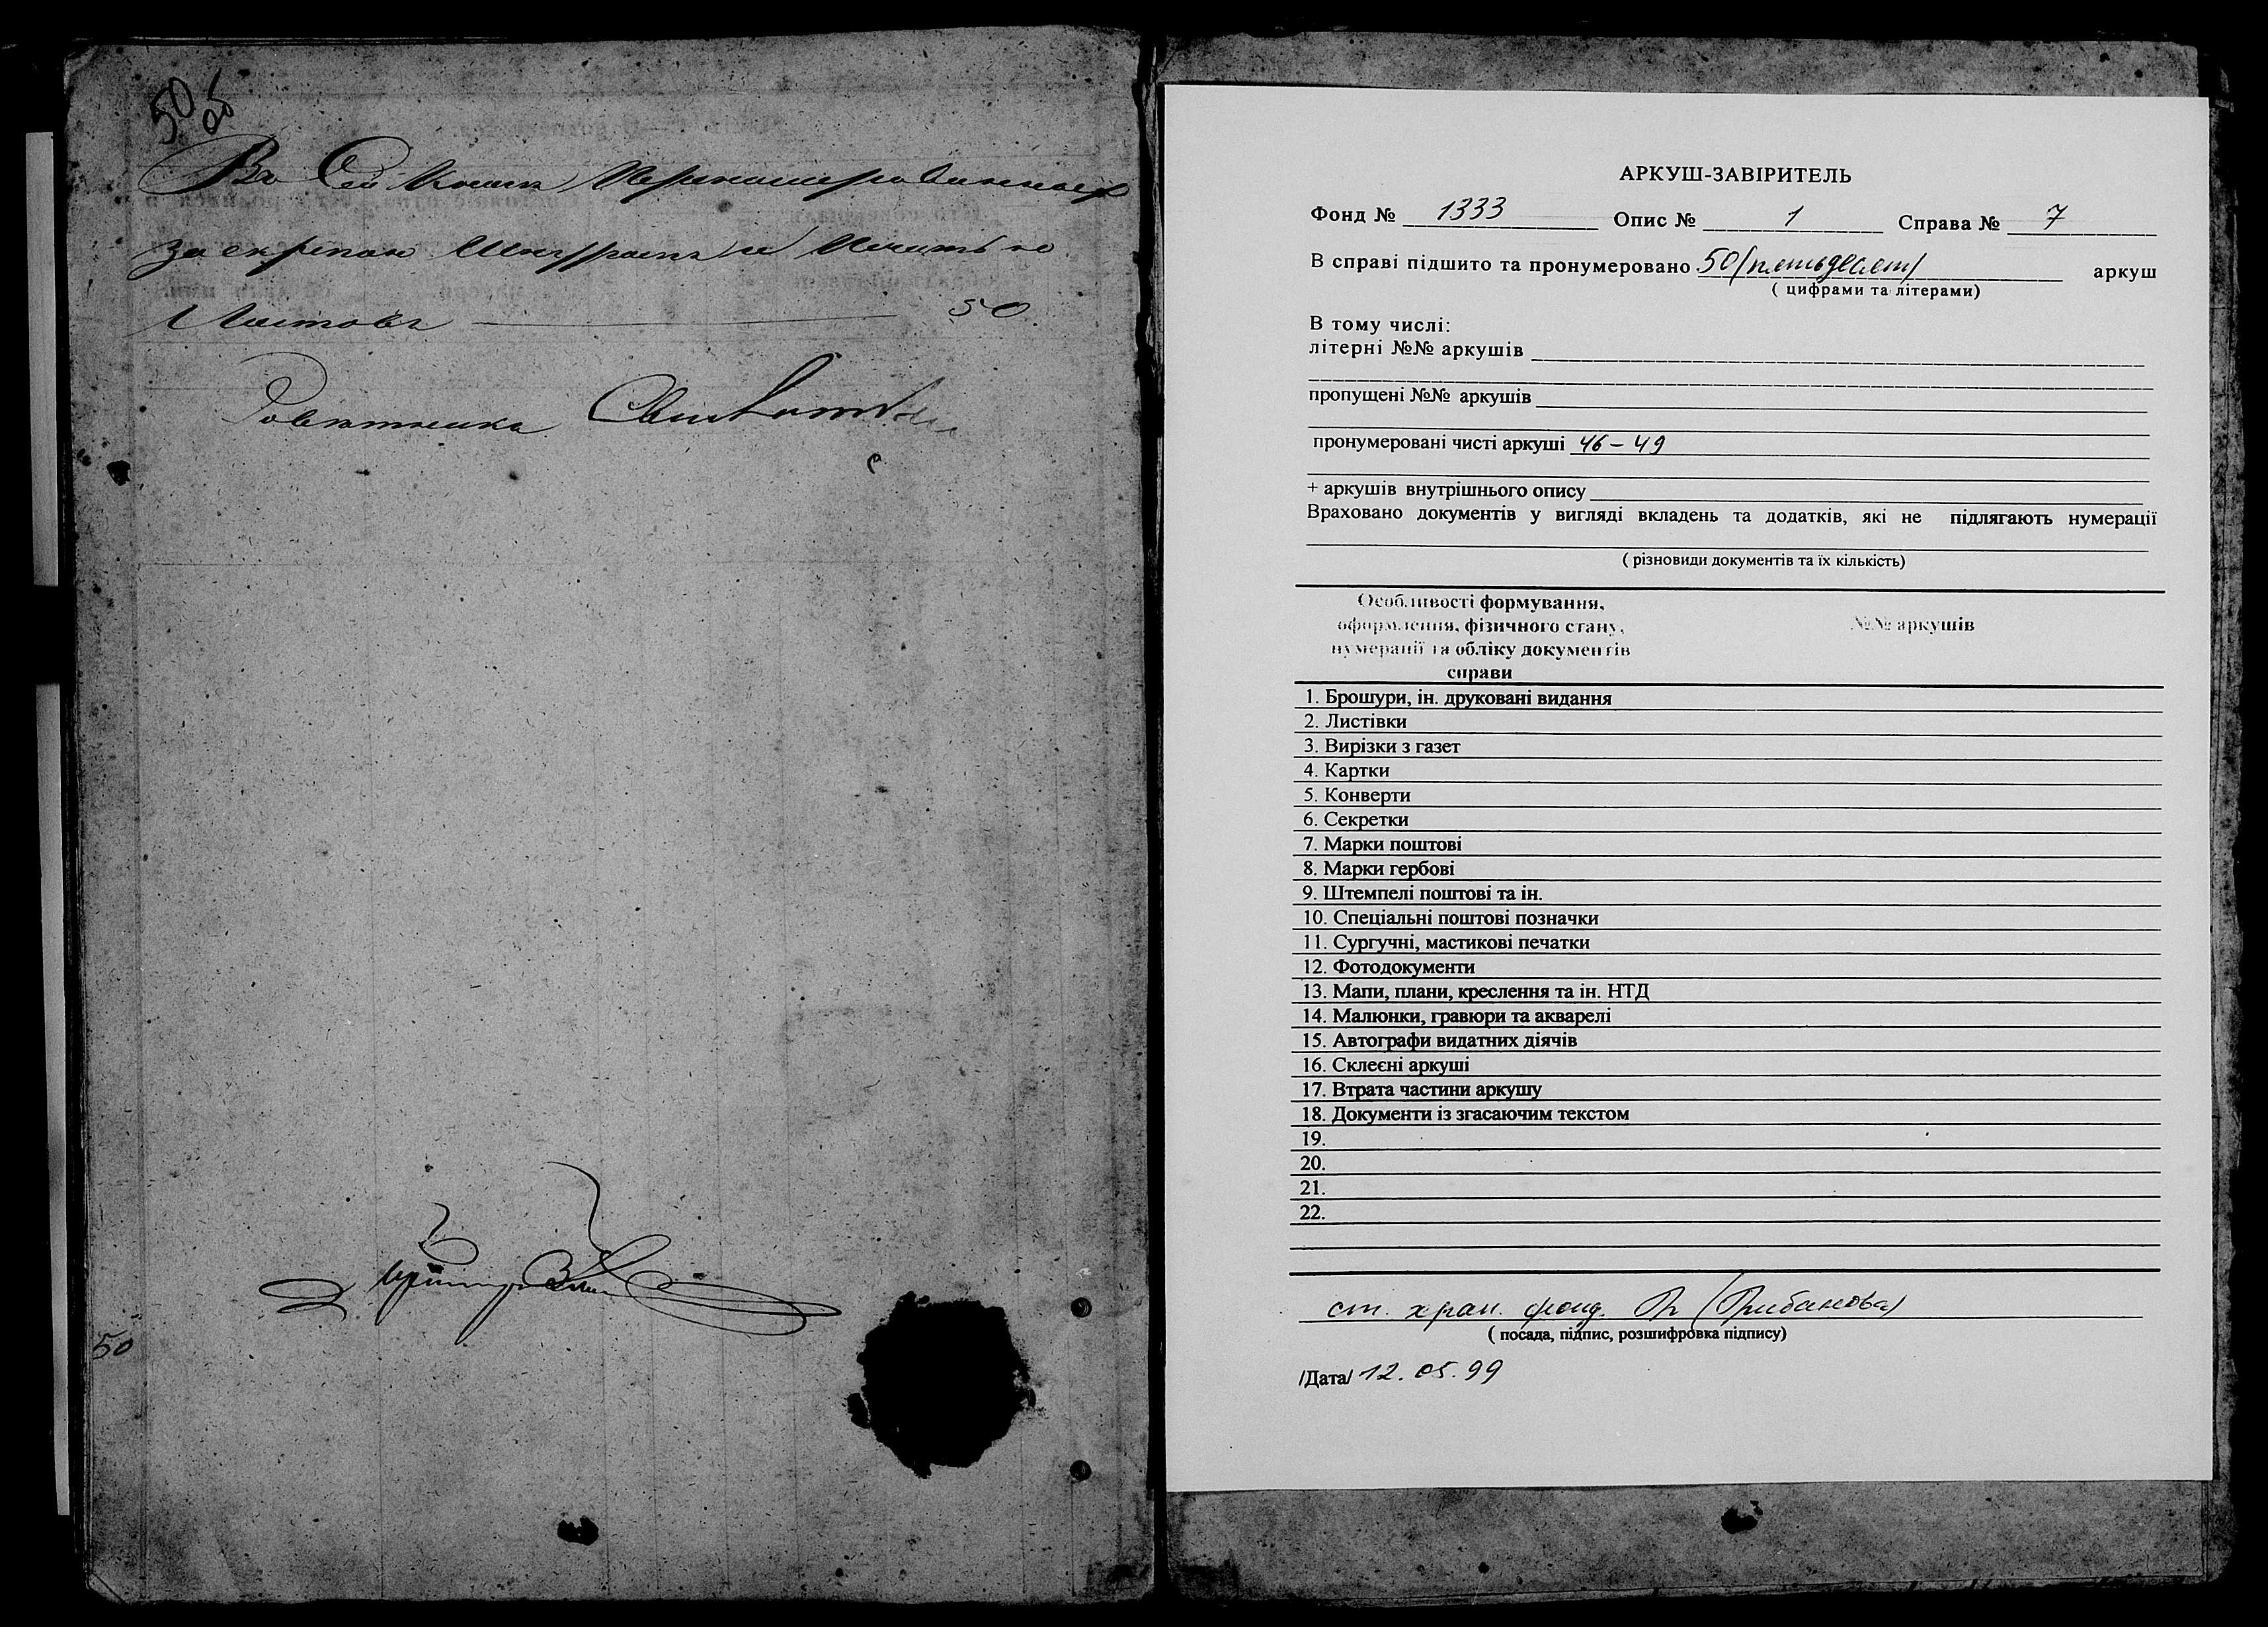 50 об
Въ Сей Книгѣ Перенумерованныхъ
за скрепою Шнуромъ и Печатью
Листовъ — 50.
50
АРКУШ-ЗАВІРИТЕЛЬ
Фонд № 1333 Опис № 1 Справа № 7
В справі підшито та пронумеровано 50 (пятьдесят) аркуш
( цифрами та літерами)
В тому числі:
літерні №№ аркушів
пропущені №№ аркушів
пронумеровані чисті аркуші 46 – 49
+ аркушів внутрішнього опису
Враховано документів у вигляді вкладень та додатків, які не підлягають нумерації
( різновиди документів та їх кількість)
Особливості формування, оформлення, фізичного стану, нумерації та обліку документів справи
№№ аркушів
1. Брошури, ін. друковані видання
2. Листівки
3. Вирізки з газет
4. Картки
5. Конверти
6. Секретки
7. Марки поштові
8. Марки гербові
9. Штемпелі поштові та ін.
10. Спеціальні поштові позначки
11. Сургучні, мастикові печатки
12. Фотодокументи
13. Мапи, плани, креслення та ін. НТД
14. Малюнки, гравюри та акварелі
15. Автографи видатних діячів
16. Склеєні аркуші
17. Втрата частини аркушу
18. Документи із згасаючим текстом
19.
20.
21.
22.
ст. хран. фонд. (Рибанова)
( посада, підпис, розшифровка підпису)
/Дата/ 12.05.99